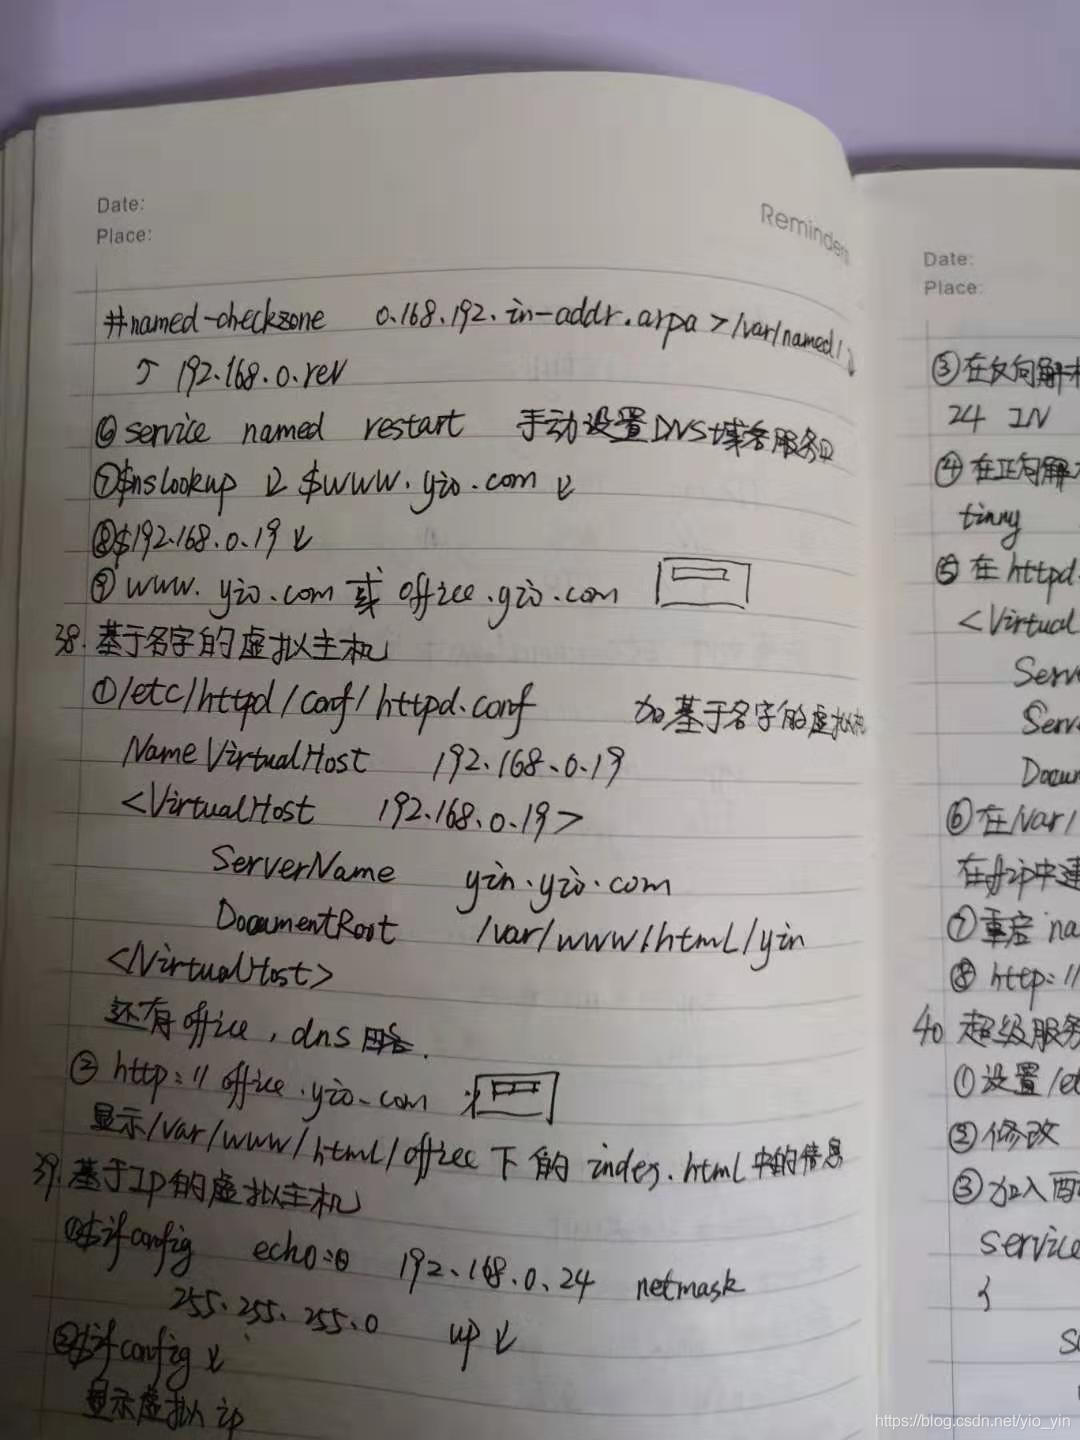 Date:
Place:
Reminders
#named-checkzone 0.168.192.in-addr.arpa > /var/named/ ↓
↑ 192.168.0.rev
⑥ service named restart 手动设置DNS域名服务口
⑦$nslookup ↙ $www.yio.com ↙
⑧$192.168.0.19 ↙
⑨ www.yio.com 或 office.yio.com
38. 基于名字的虚拟主机
①/etc/httpd/conf/httpd.conf 加基于名字的虚拟机
NameVirtualHost 192.168.0.19
<VirtualHost 192.168.0.19>
ServerName yin.yio.com
DocumentRoot /var/www/html/yin
</VirtualHost>
还有office, dns 略.
② http://office.yio.com
显示/var/www/html/office 下的 index.html中的信息
39. 基于Ip的虚拟主机
①$ifconfig echo:0 192.168.0.24 netmask
255.255.255.0 up ↙
②$ifconfig ↙
显示虚拟ip
Date:
Place:
③在反向解析
24 IN
④在正向解
tinny
⑤在httpd.
<Virtual
Serve
Serve
Docum
⑥在/var/
在 ip中建
⑦重启 na
⑧ http://
40 超级服务
①设置/et
②修改
③加入配
service
{
https://blog.csdn.net/yio_yin